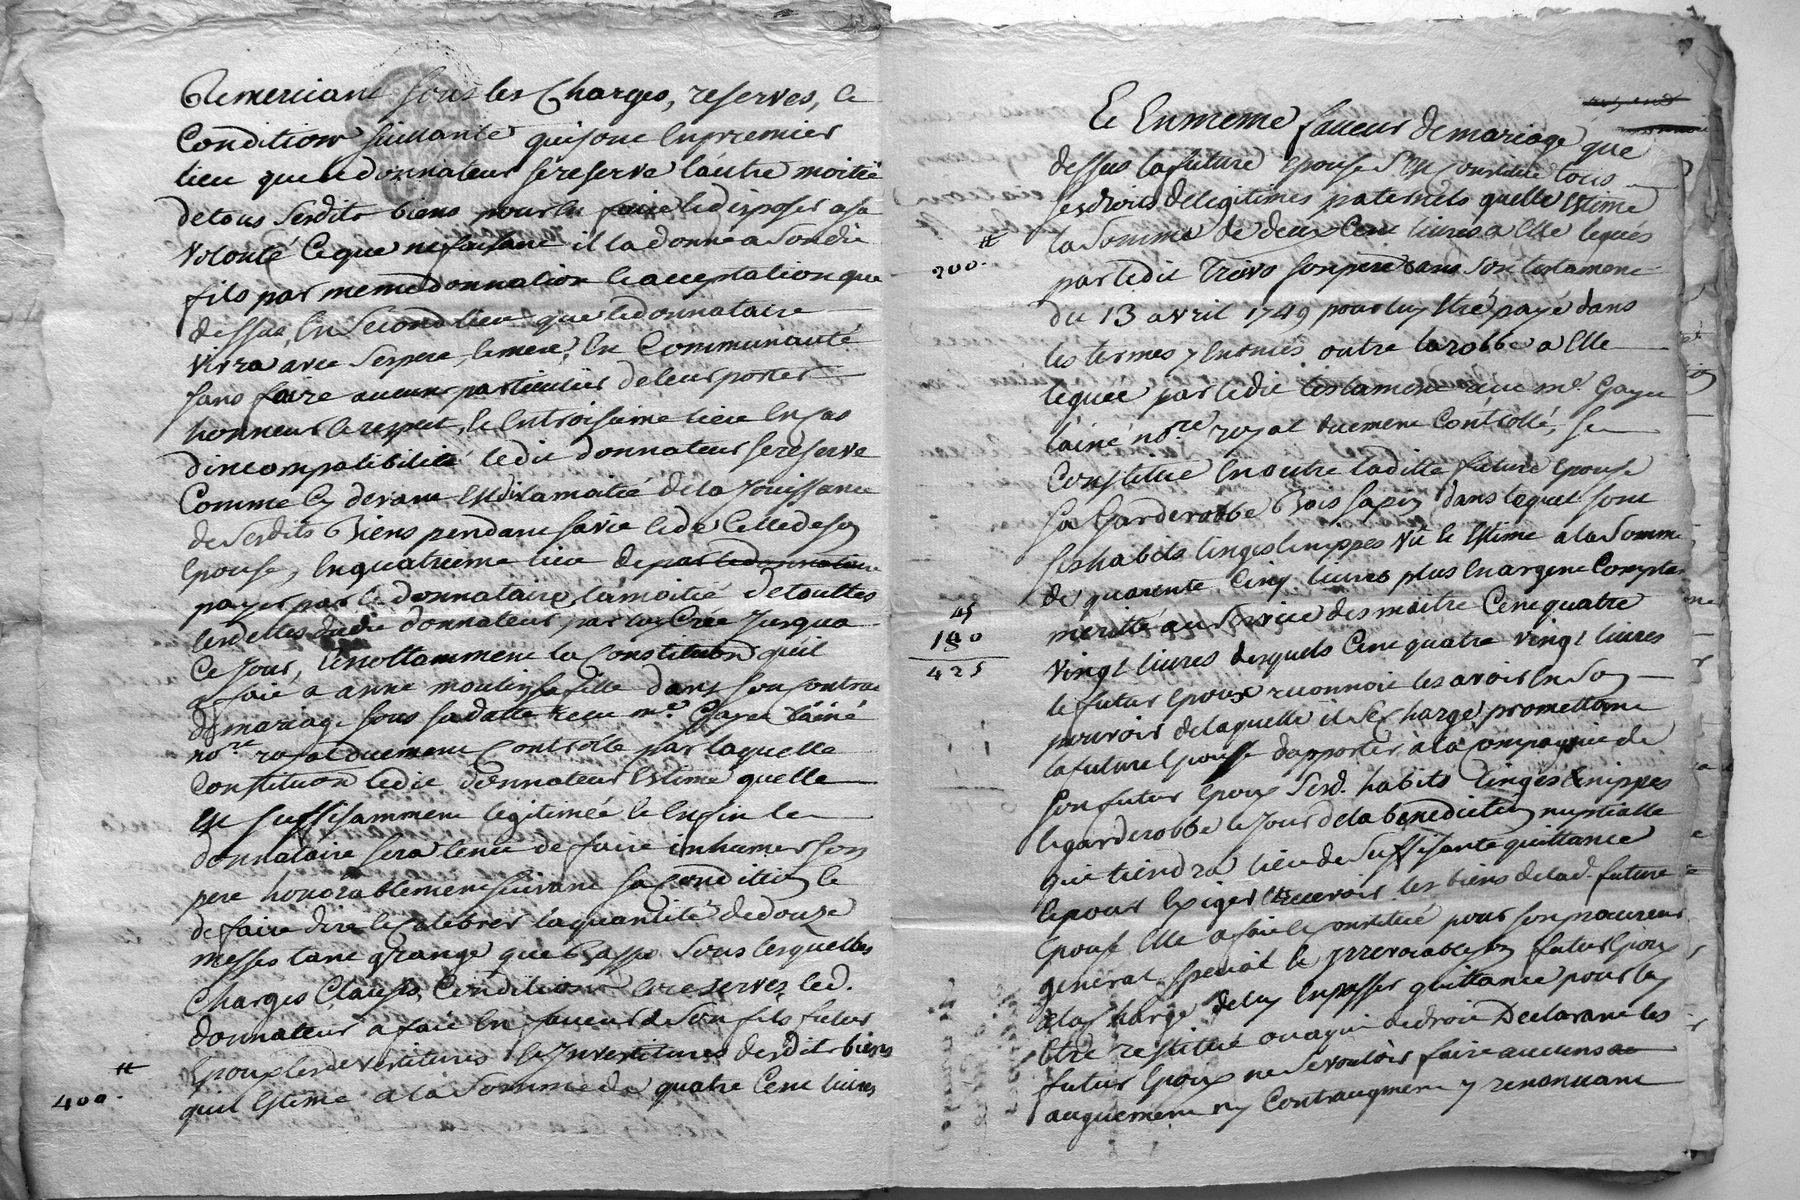 Remerciant sous les Charges, reserves, et
Condition suivante qui sont en premier
lieu que le donnateur se reserve l'autre moitié
de tous Serdits biens pour en faire et disposer a sa
volonté Ce que ne faisant il la donne a Son dit
fils par meme donnation et acceptation que
dessus, En Second lieu que le donnataire
vivra avec Ses pere et mere, En Communauté
sans faire aucun particulier de leur porter
honneur et respect, et En troisieme lieu En Cas
d'incompatibilité ledit donnateur se reserve
Comme Cy devant est dit la moitié de la Jouissance
de Serdits Biens pendant sa vie et de Celle de son
Epouse, En quatrieme lieu de par le donnataire
payer par le donnataire la moitié de touttes
les dettes dudit donnateur par luy Créé Jusqua
Ce Jour, et nottamment la Constitution qu'il
a fait a anne moulin sa fille dans son Contrat
de mariage sous sa datte recu me. Gayet l'ainé
nore. royal duement Controlle par laquelle
Constitution ledit donnateur Estime quelle
est suffisamment legitimée et Enfin le
donnataire sera tenu de faire inhumer son
pere honorablement suivant sa Condition et
de faire dire et Celebrer la quantité de douze
messes tant grande que Basse Sous lesquelles
Charges Clauses, Condition et reserves, led.
donnateur a fait En faveur de Son fils futur
Epoux les devestitures et Investitures desdits biens
# quil Estime a la Somme de quatre Cent livres
400.
Et En meme faveur de mariage que
dessus la future Epouse s'est Constitué tous
ses droits de legitimes paternels quelle Estime
# la Somme de deux Cent livres a Elle legués
200. par ledit Son pere dans Son testament
du 13 avril 1749 pour luy Etre payé dans
les termes y Enoncés outre la robbe a Elle
leguée par ledit testament recu me. Gayet
l'ainé nore. royal duement Controllé, Se
Constitue En outre laditte future Epouse
sa Garderobbe Bois sapin dans lequel sont
ses habits linges et nippes Vu et Estimé a la Somme
45 de quarente Cinq livres plus En argent Comptant
180 meritté au Service des maitre Cent quatre
425 vingt livres desquels Cent quatre vingt livres
le futur Epoux reconnoit les avoir En Son
pouvoir de laquelle il se Charge, promettant
la future Epouse d'apporter a la Compagnie de
Son futur Epoux Sesd. habits linges et nippes
et garderobbe le Jour de la benediction nuptialle
qui tiendra lieu de Suffisante quittance
et pour Exiger et recevoir les biens de lad. future
Epouse Elle a fait et Constitué pour Son procureur
general special et Irrevocable Son futur Epoux
a la Charge de luy En passer quittance pour luy
Etre restitué ou a qui de droit Declarant les
futur Epoux ne Se vouloir faire aucuns
auguement ny Contraugment y renoncant